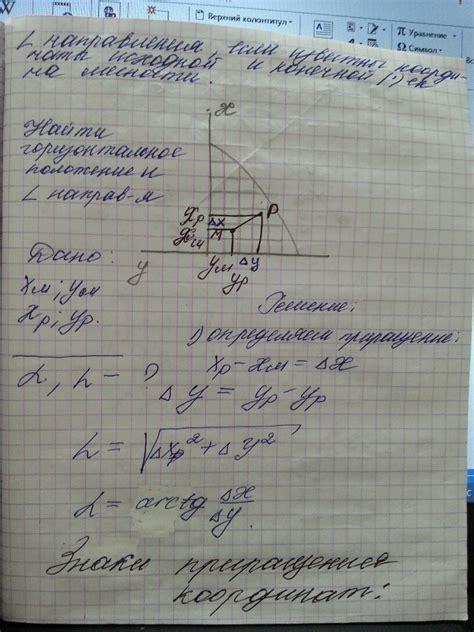 W
Верхний колонтитул
π Уравнение
Ω Символ
L направления, если известны коорди-
наты исходной и конечной (·) ек
на местности.
x
Найти
горизонтальное
положение и
L направ-я
P
xp Δx
xм M
y
yм Δy
yp
Дано:
xм; yм
xp; yp.
Решение:
1) определяем приращение:
xp - xм = Δx
L, L - ?
Δy = yp - yp
L = √Δxp² + Δy²
L = arctg Δx/Δy.
Знаки приращение
координат: